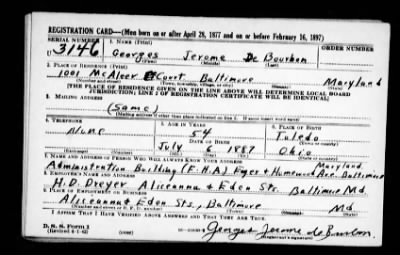 REGISTRATION CARD—(Men born on or after April 28, 1877 and on or before February 16, 1897)
SERIAL NUMBER 1. NAME (Print) ORDER NUMBER
U 3146 Georges Jerome De Bourbon
(First) (Middle) (Last)
2. PLACE OF RESIDENCE (Print)
1001 McAleer Court Baltimore Maryland
[THE PLACE OF RESIDENCE GIVEN ON THE LINE ABOVE WILL DETERMINE LOCAL BOARD
JURISDICTION; LINE 2 OF REGISTRATION CERTIFICATE WILL BE IDENTICAL]
3. MAILING ADDRESS
(Same)
[Mailing address if other than place indicated on line 2. If same insert word same]
4. TELEPHONE 5. AGE IN YEARS 6. PLACE OF BIRTH
None 54 Toledo
DATE OF BIRTH
July 6 1887 Ohio
7. NAME AND ADDRESS OF PERSON WHO WILL ALWAYS KNOW YOUR ADDRESS Maryland
Administration Building (F.H.A) Ave. Baltimore
8. EMPLOYER'S NAME AND ADDRESS
H. D. Dreyer Aliceanna & Eden Sts. Baltimore Md.
9. PLACE OF EMPLOYMENT OR BUSINESS
Aliceanna & Eden Sts., Baltimore Md.
I AFFIRM THAT I HAVE VERIFIED ABOVE ANSWERS AND THAT THEY ARE TRUE.
D. S. S. Form 1
(Revised 4-1-42) (over) Georges Jerome de Bourbon
(Registrant's signature)